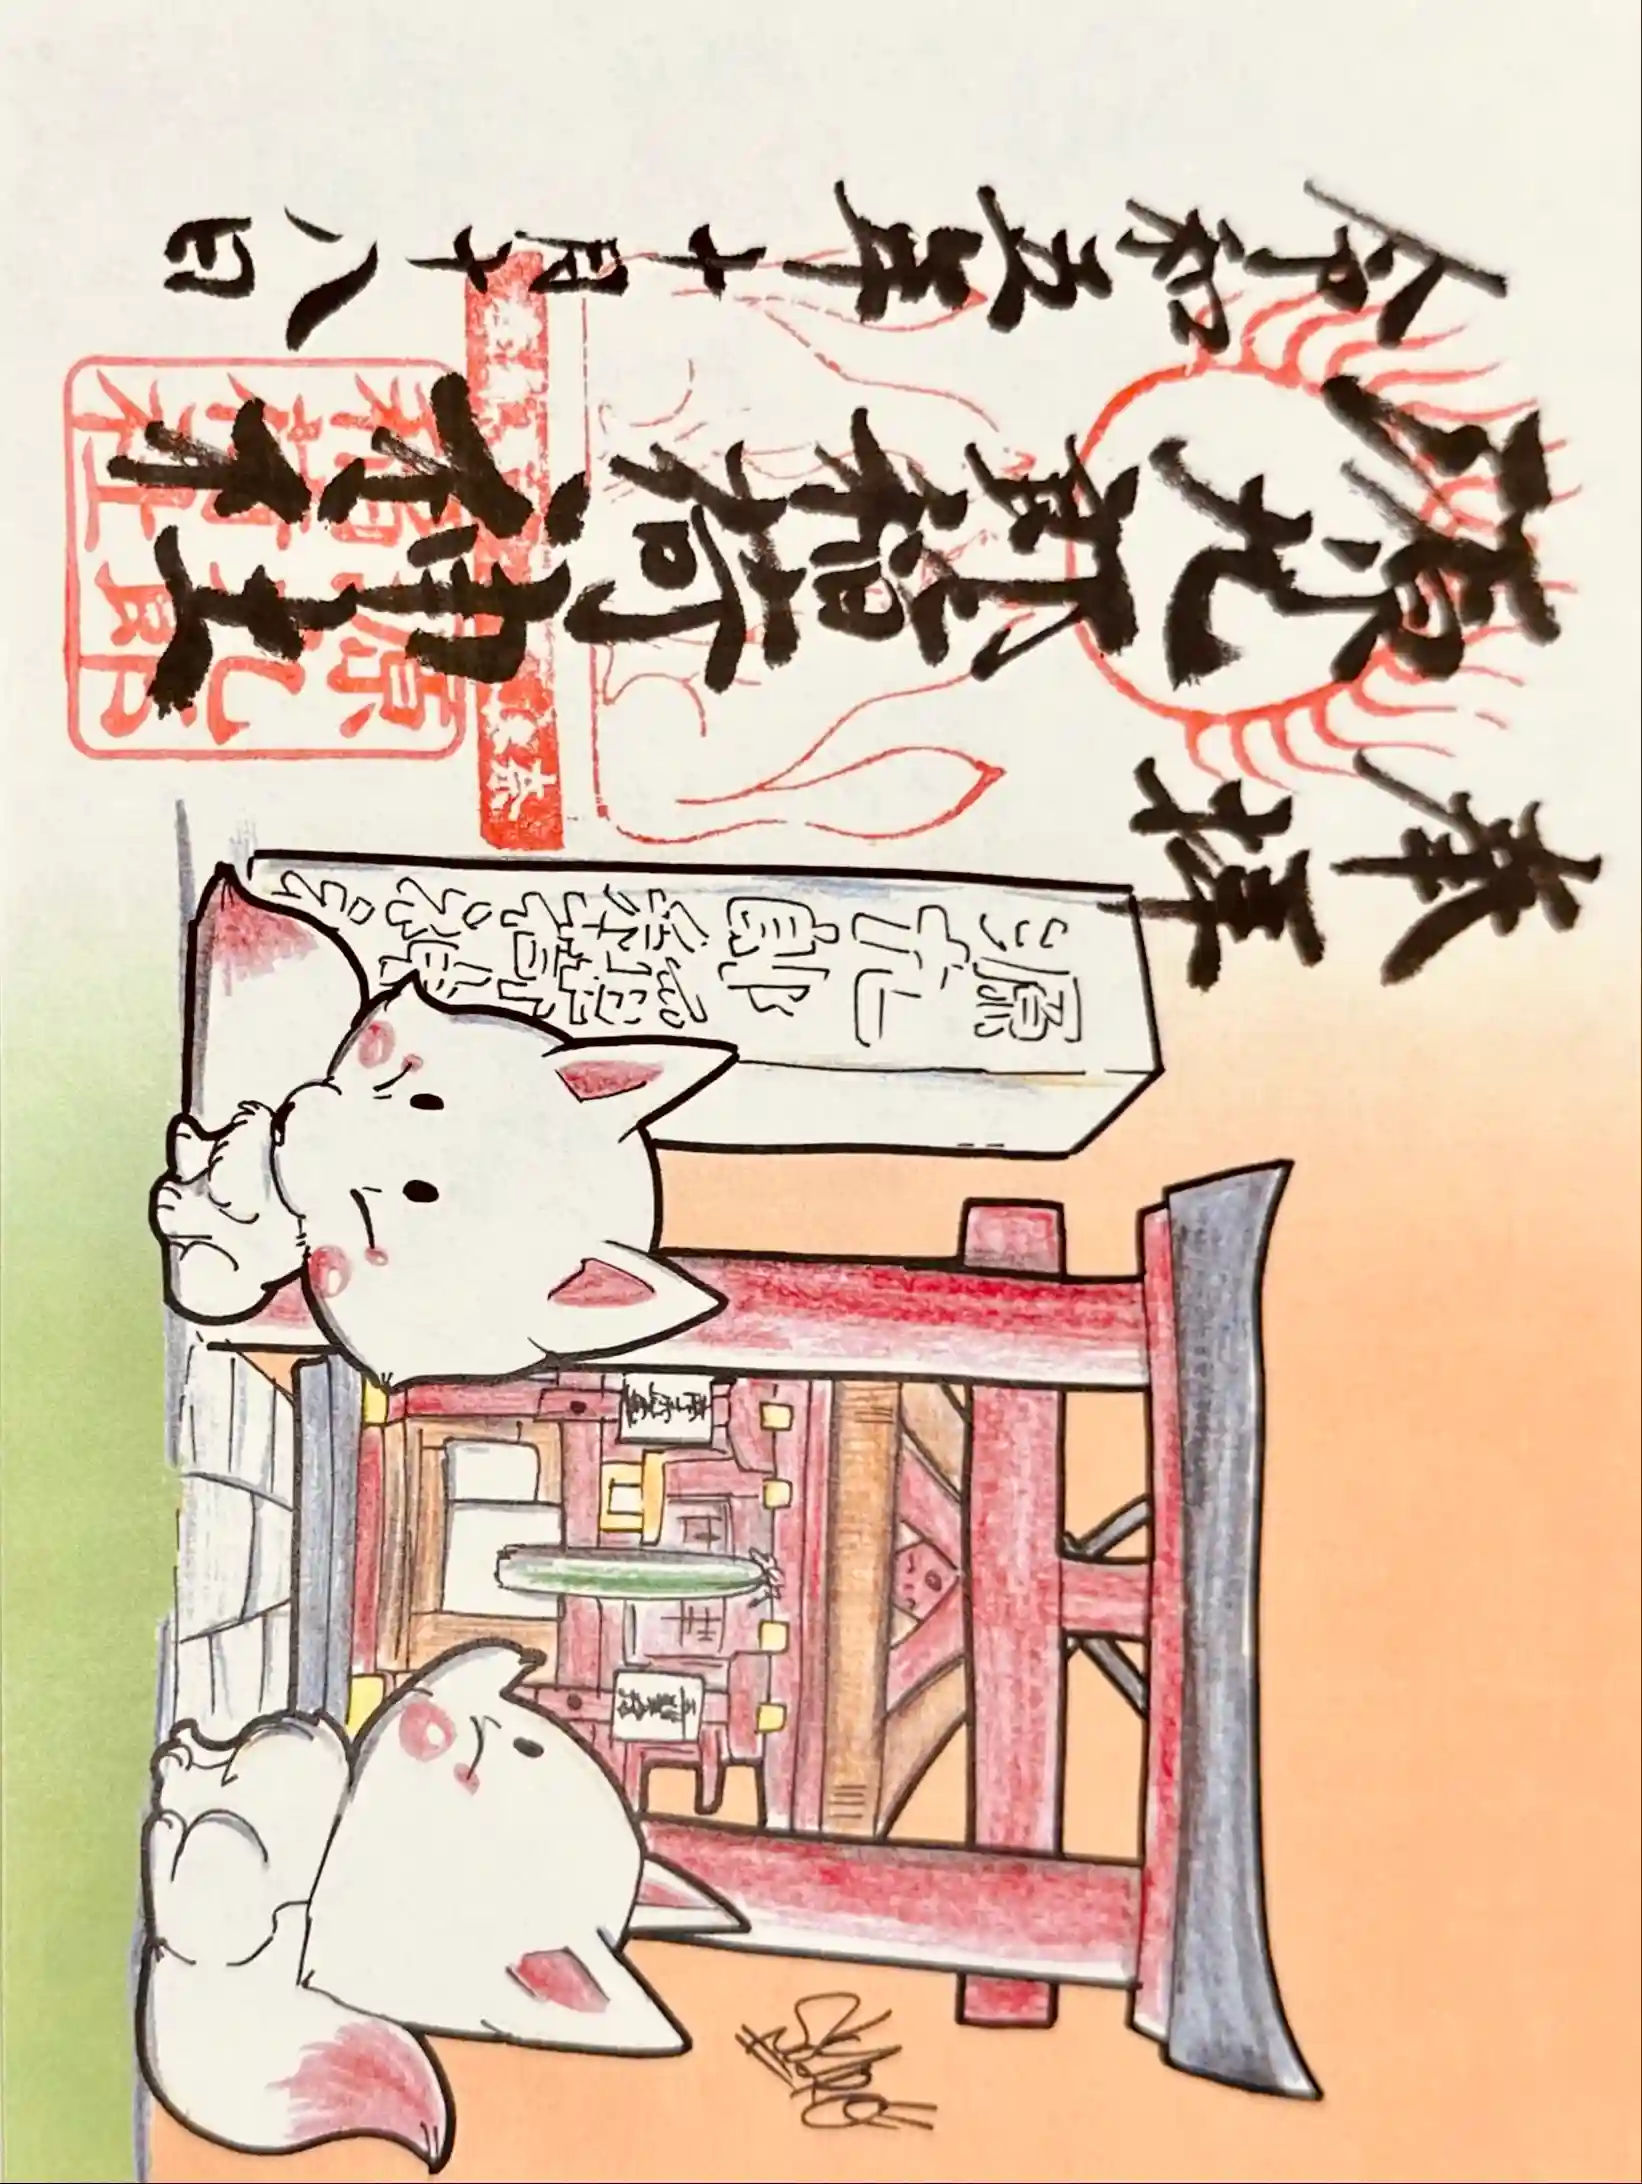 源九郎
奉拝
源九郎稲荷神社
源九郎
稲荷神社
令和五年十月十八日